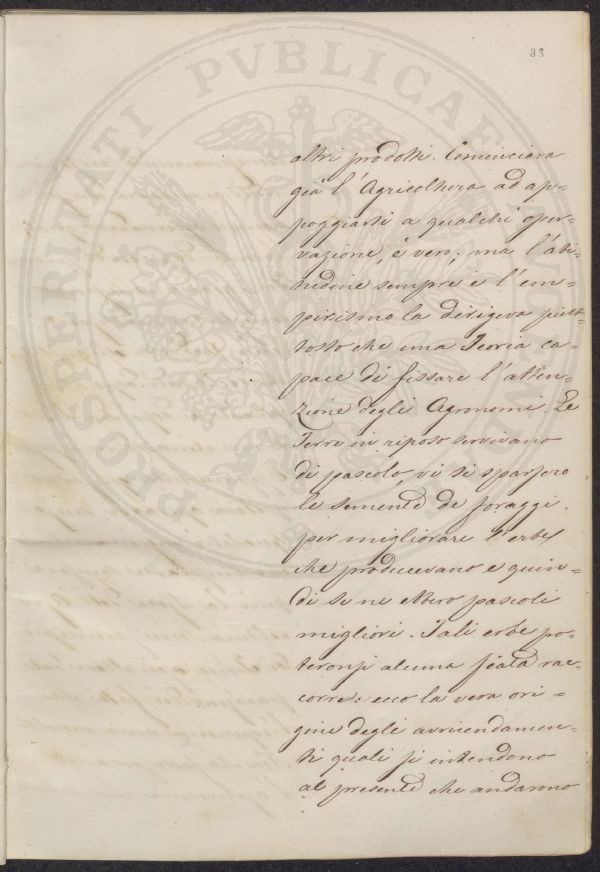 38
altri prodotti. Cominciava
già l'Agricoltura ad ap=
poggiarsi a qualche oper=
vazione, è vero; ma l'abi=
tudine sempre e l'em=
pirismo la dirigeva piut=
tosto che una Teoria ca=
pace di fissare l'atten=
zione degli Agronomi. Le
Terre in riposo servivano
di pascolo, vi si sparsero
le semente de foraggi
per migliorare l'erbe
che producevano e quin=
di se ne ebbero pascoli
migliori. Tali erbe po=
teronsi alcuna fiata rac=
corre: ecco la vera ori=
gine degli avvicendamen=
ti quali si intendono
al presente che andarono
PROSPERITATI PVBLICAE